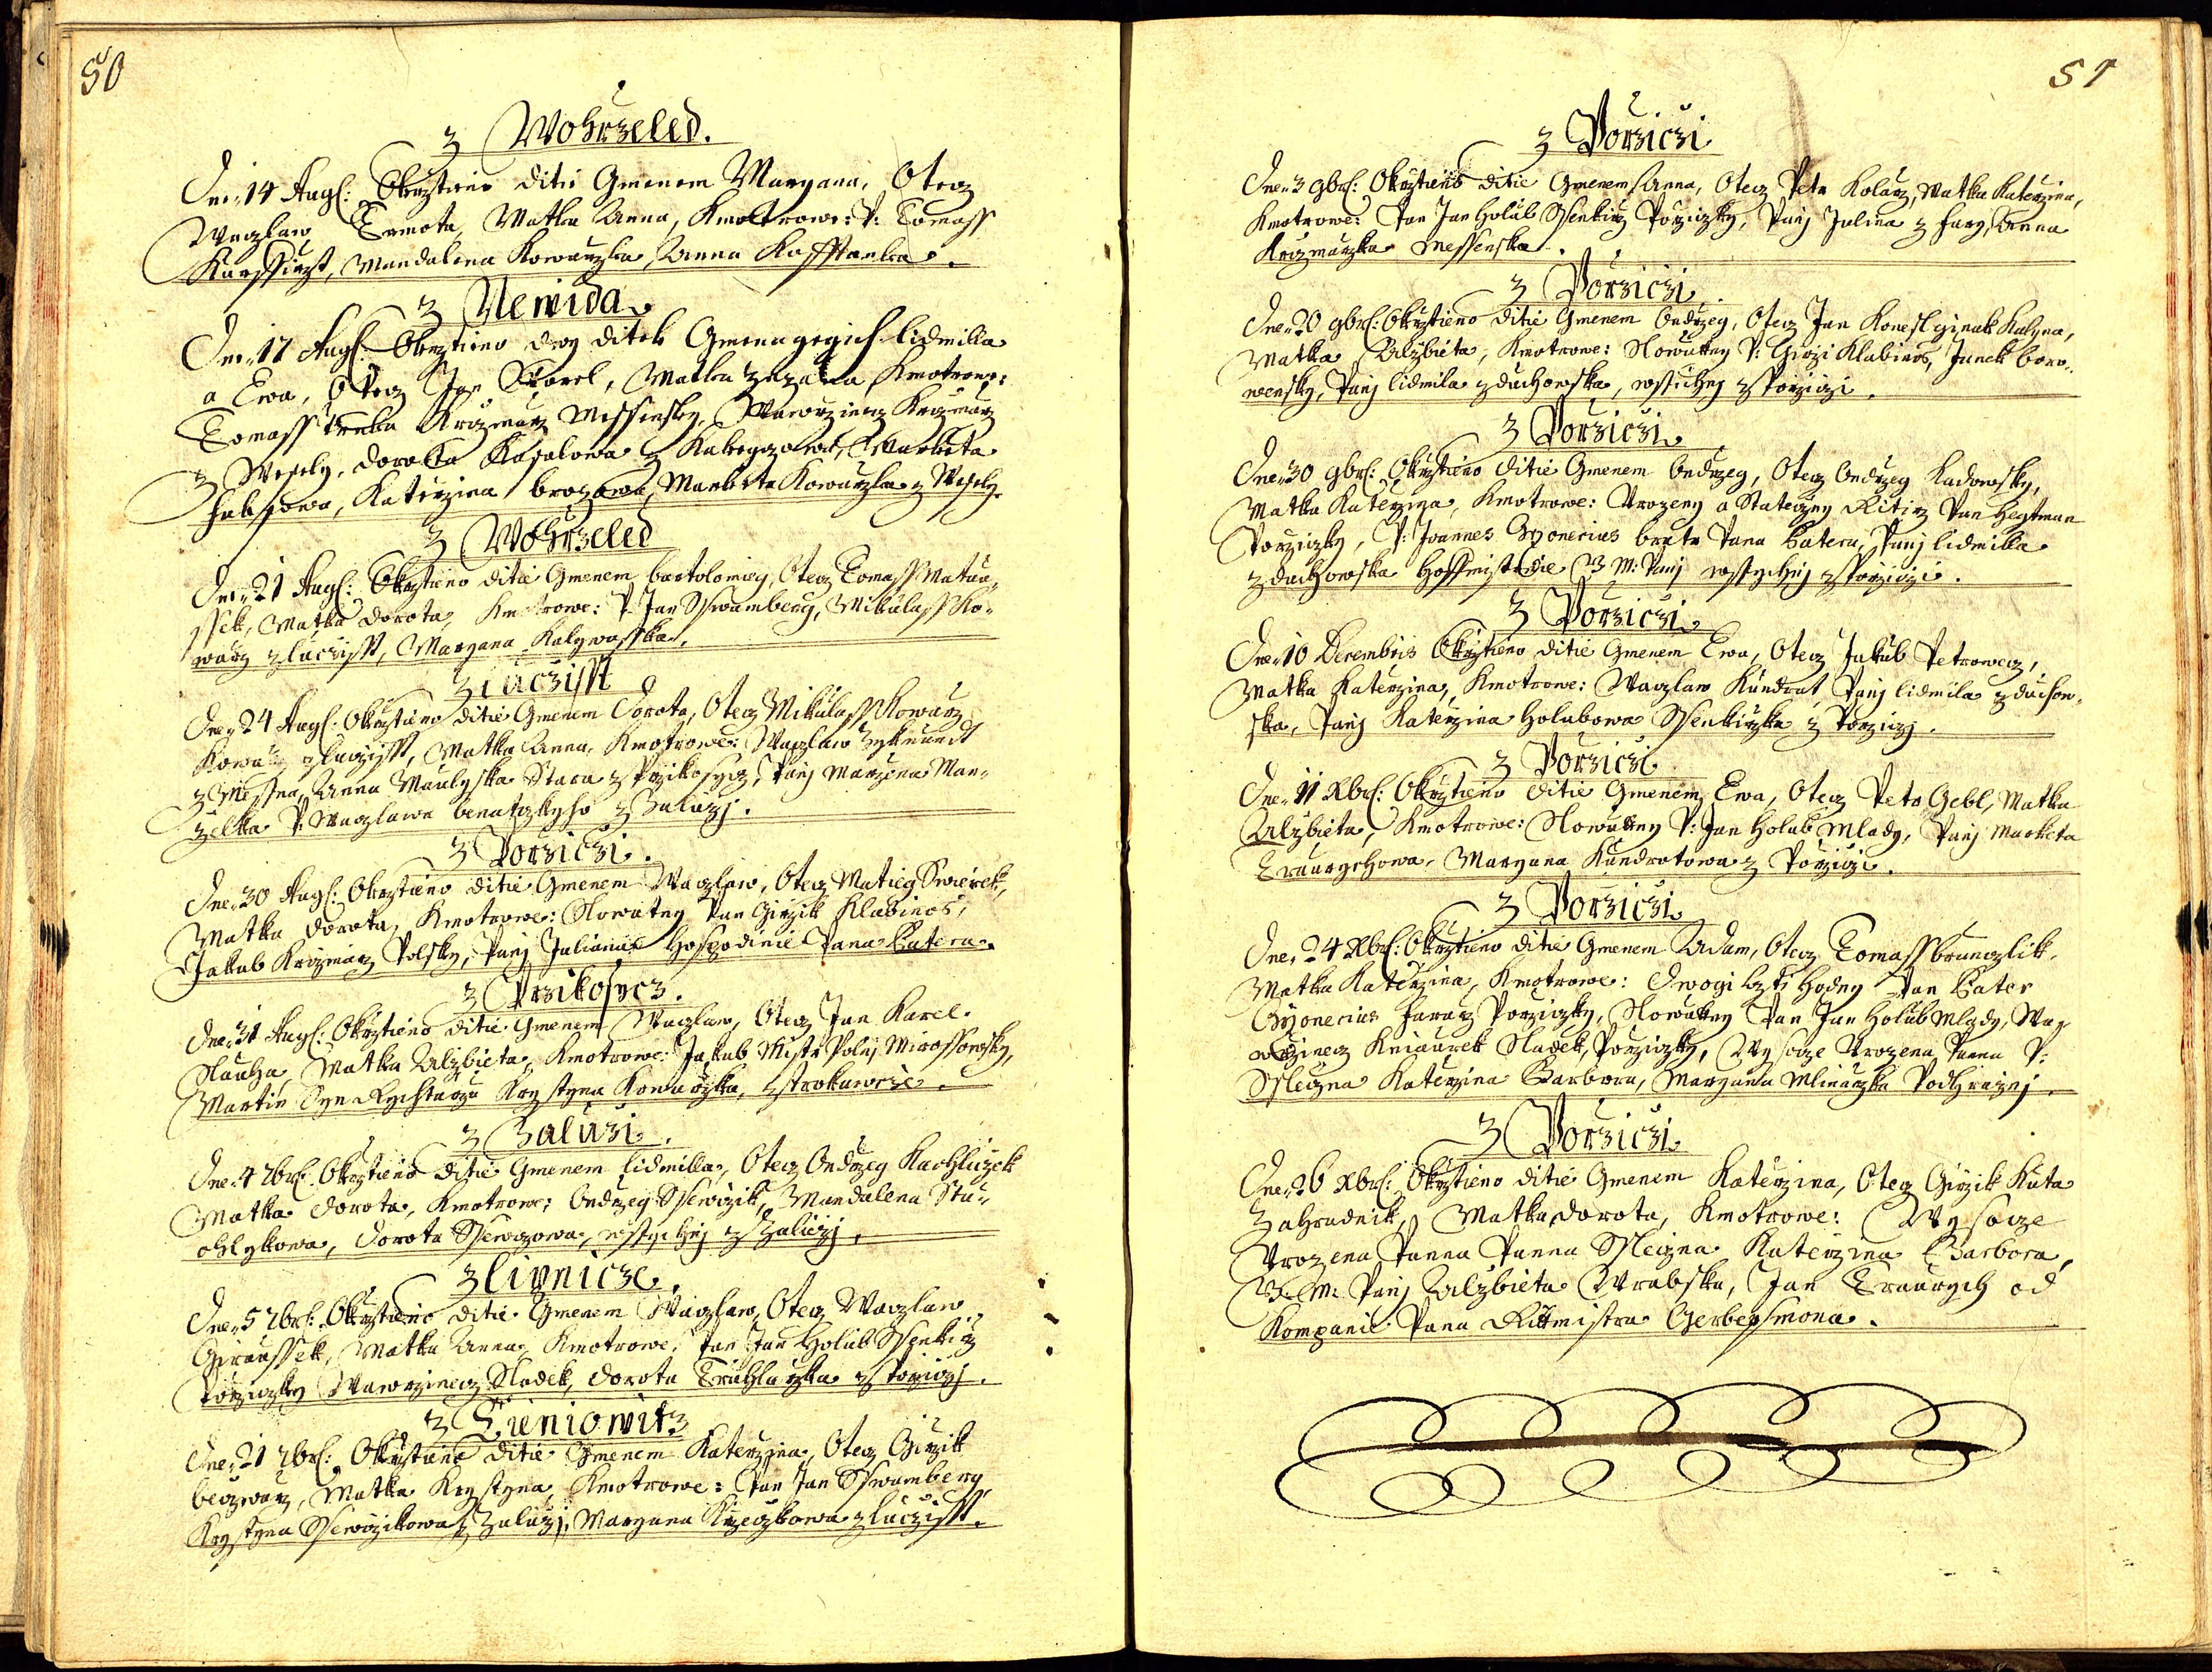 50
z Wohrzeled.
Dne 14 Augs: Okrztieno ditie Gmenem Maryana, Otecz
Waczlaw Trmota, Matka Anna, Kmotrowe: P: Tomass
Karssiczt, Mandalena Kowarzka, Anna Kafftanka.
z Newida
Dne 17 Augs: Okrztieno dwy ditek Gmena gegich lidmilla
a Ewa, Otecz Jan Skorel, Matka Zuzana, Kmotrowe:
Tomass Krczmarz Missensky, Wawrzinecz Krczmarz
z Wesely, dorotka z Marketa
Katerzina Marketa Kowarzka z Wesely
z Wohrzeled
Dne 21 Augs: Okrztieno ditie Gmenem bartolomieg, Otecz Tomass Matau-
ssek, Matka dorota, Kmotrowe: P: Jan Sswamberg, Mikulass Ko-
warz z luczisst, Maryana Kalywasska.
z luczisst
Dne 24 Augs: Okrztieno ditie Gmenem Dorota, Otecz Mikulass Kowarz
Kowarz z luczisst, Matka Anna, Kmotrowe: Waczlaw Zykmundt
z Missna, Anna Maulyska Stara z Przikosycz, Panj Marzena Man-
zelka P: Waczlawa benatczkyho z Zaluzj.
z Porziczi.
Dne 30 Augs: Okrztieno ditie Gmenem Waczlaw, Otecz Matieg Swierek,
Matka dorota, Kmotrowe: Slowutny Pan Girzik Klabinos,
Jakub Krczmarz Polsky, Panj Juliana Hospodinie Pana Patera.
z Przikosycz.
Dne 31 Augs: Okrztieno ditie Gmenem Waczlaw, Otecz Jan Karel
Slauha, Matka Alzbieta, Kmotrowe: Jakub Mistr Polnj Mirossowsky,
Martin Syn Rychtarzu Krystyna Konwarzka, z strokawcze.
z Zaluzi.
Dne 4 7brs: Okrztieno ditie Gmenem lidmilla, Otecz Ondrzeg Kachliczek
Matka dorota, Kmotrowe: Ondrzeg Ssewczik, Mandalena Stu-
chlykowa, dorota Ssewczowa, wssychnj z Zaluzj.
z lipnicze.
Dne 5 7brs: Okrztieno ditie Gmenem Waczlaw, Otecz Waczlaw
Giraussek, Matka Anna, Kmotrowe: Pan Jan Holub Ssenkirz
Porziczky Wawrzinecz Sladek, dorota Truhlarzka z Porziczj.
z Tieniowitz
Dne 21 7brs: Okrztieno ditie Gmenem Katerzina, Otecz Girzik
beczwarz, Matka Krystyna, Kmotrowe: Pan Jan Sswamberg,
Krystyna Ssewczikowa z Zaluzj, Maryana Krzeczkowa z luczisst.
51
z Porziczi
Dne 3 9brs: Okrztieno ditie Gmenem Anna, Otecz Petr Kolarz, Matka Katerzina,
Kmotrowe: Pan Jan Holub Ssenkirz Porziczky, Panj Julina z fary, Anna
Krczmarzka Messenska.
z Porziczi
Dne 20 9brs: Okrztieno ditie Gmenem Ondrzeg, Otecz Jan Konesl ginak Kalyna,
Matka Alzbieta, Kmotrowe: Slowutny P: Girzi Klabinos, Janek boro-
wensky, Panj lidmila z duchowska, wssichnj z Porziczi.
z Porziczi
Dne 30 9brs: Okrztieno ditie Gmenem Ondrzeg, Otecz Ondrzeg Kadowsky,
Matka Katerzina, Kmotrowe: Urozeny a Stateczny Ritirz Pan Hegtman
Porziczky, P: Joannes Gyonerius bratr Pana Patera, Panj lidmilla
z duchowska Hoffmistrzie J M: Panj wssychnj z Porziczi.
z Porziczi
Dne 10 Decembris Okrztieno ditie Gmenem Ewa, Otecz Jakub Petrowecz,
Matka Katerzina, Kmotrowe: Waczlaw Kundrat, Panj lidmila z duchow-
ska, Panj Katerzina Holubowa Ssenkirzka z Porziczj.
z Porziczi
Dne 11 Xbrs: Okrztieno ditie Gmenem Ewa, Otecz Petr Gebl, Matka
Alzbieta, Kmotrowe: Slowutny P: Jan Holub Mlady, Panj Marketa
Traurychowa, Maryana Kundratowa z Porziczi.
z Porziczi
Dne 24 Xbrs: Okrztieno ditie Gmenem Adam, Otecz Tomass brunczlik,
Matka Katerzina, Kmotrowe: Dwogi czti Hodny Pan Pater
Gyonerius Pararz Porziczky, Slowutny Pan Jan Holub Mlady, Waw-
rzinecz Kniaurek Sladek, Porziczky, Wysocze Urozena Panna P:
Sslecztna Katerzina Barbora, Maryana Mlinarzka Podhraznj.
z Porziczi
Dne 26 Xbrs: Okrztieno ditie Gmenem Katerzina, Otecz Girzik Kuta
Zahradnik, Matka dorota, Kmotrowe: Wysocze
Urozena Panna Panna Sslecztna Katerzina Barbora,
J. M: Panj Alzbieta Wrabska, Jan Traurych od
Kompanie Pana Rittmistra Gerbersmona.